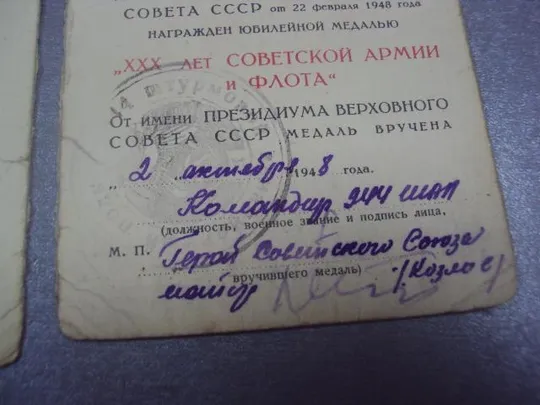 СОВЕТА СССР от 22 февраля 1948 года
НАГРАЖДЕН ЮБИЛЕЙНОЙ МЕДАЛЬЮ
„XXX ЛЕТ СОВЕТСКОЙ АРМИИ
и ФЛОТА“
От имени ПРЕЗИДИУМА ВЕРХОВНОГО
СОВЕТА СССР МЕДАЛЬ ВРУЧЕНА
„2 октября 1948 года.
Командир 944 шап
(должность, военное звание и подпись лица,
М. П. Герой Советского Союза
вручившего медаль)
майор /Козлов/